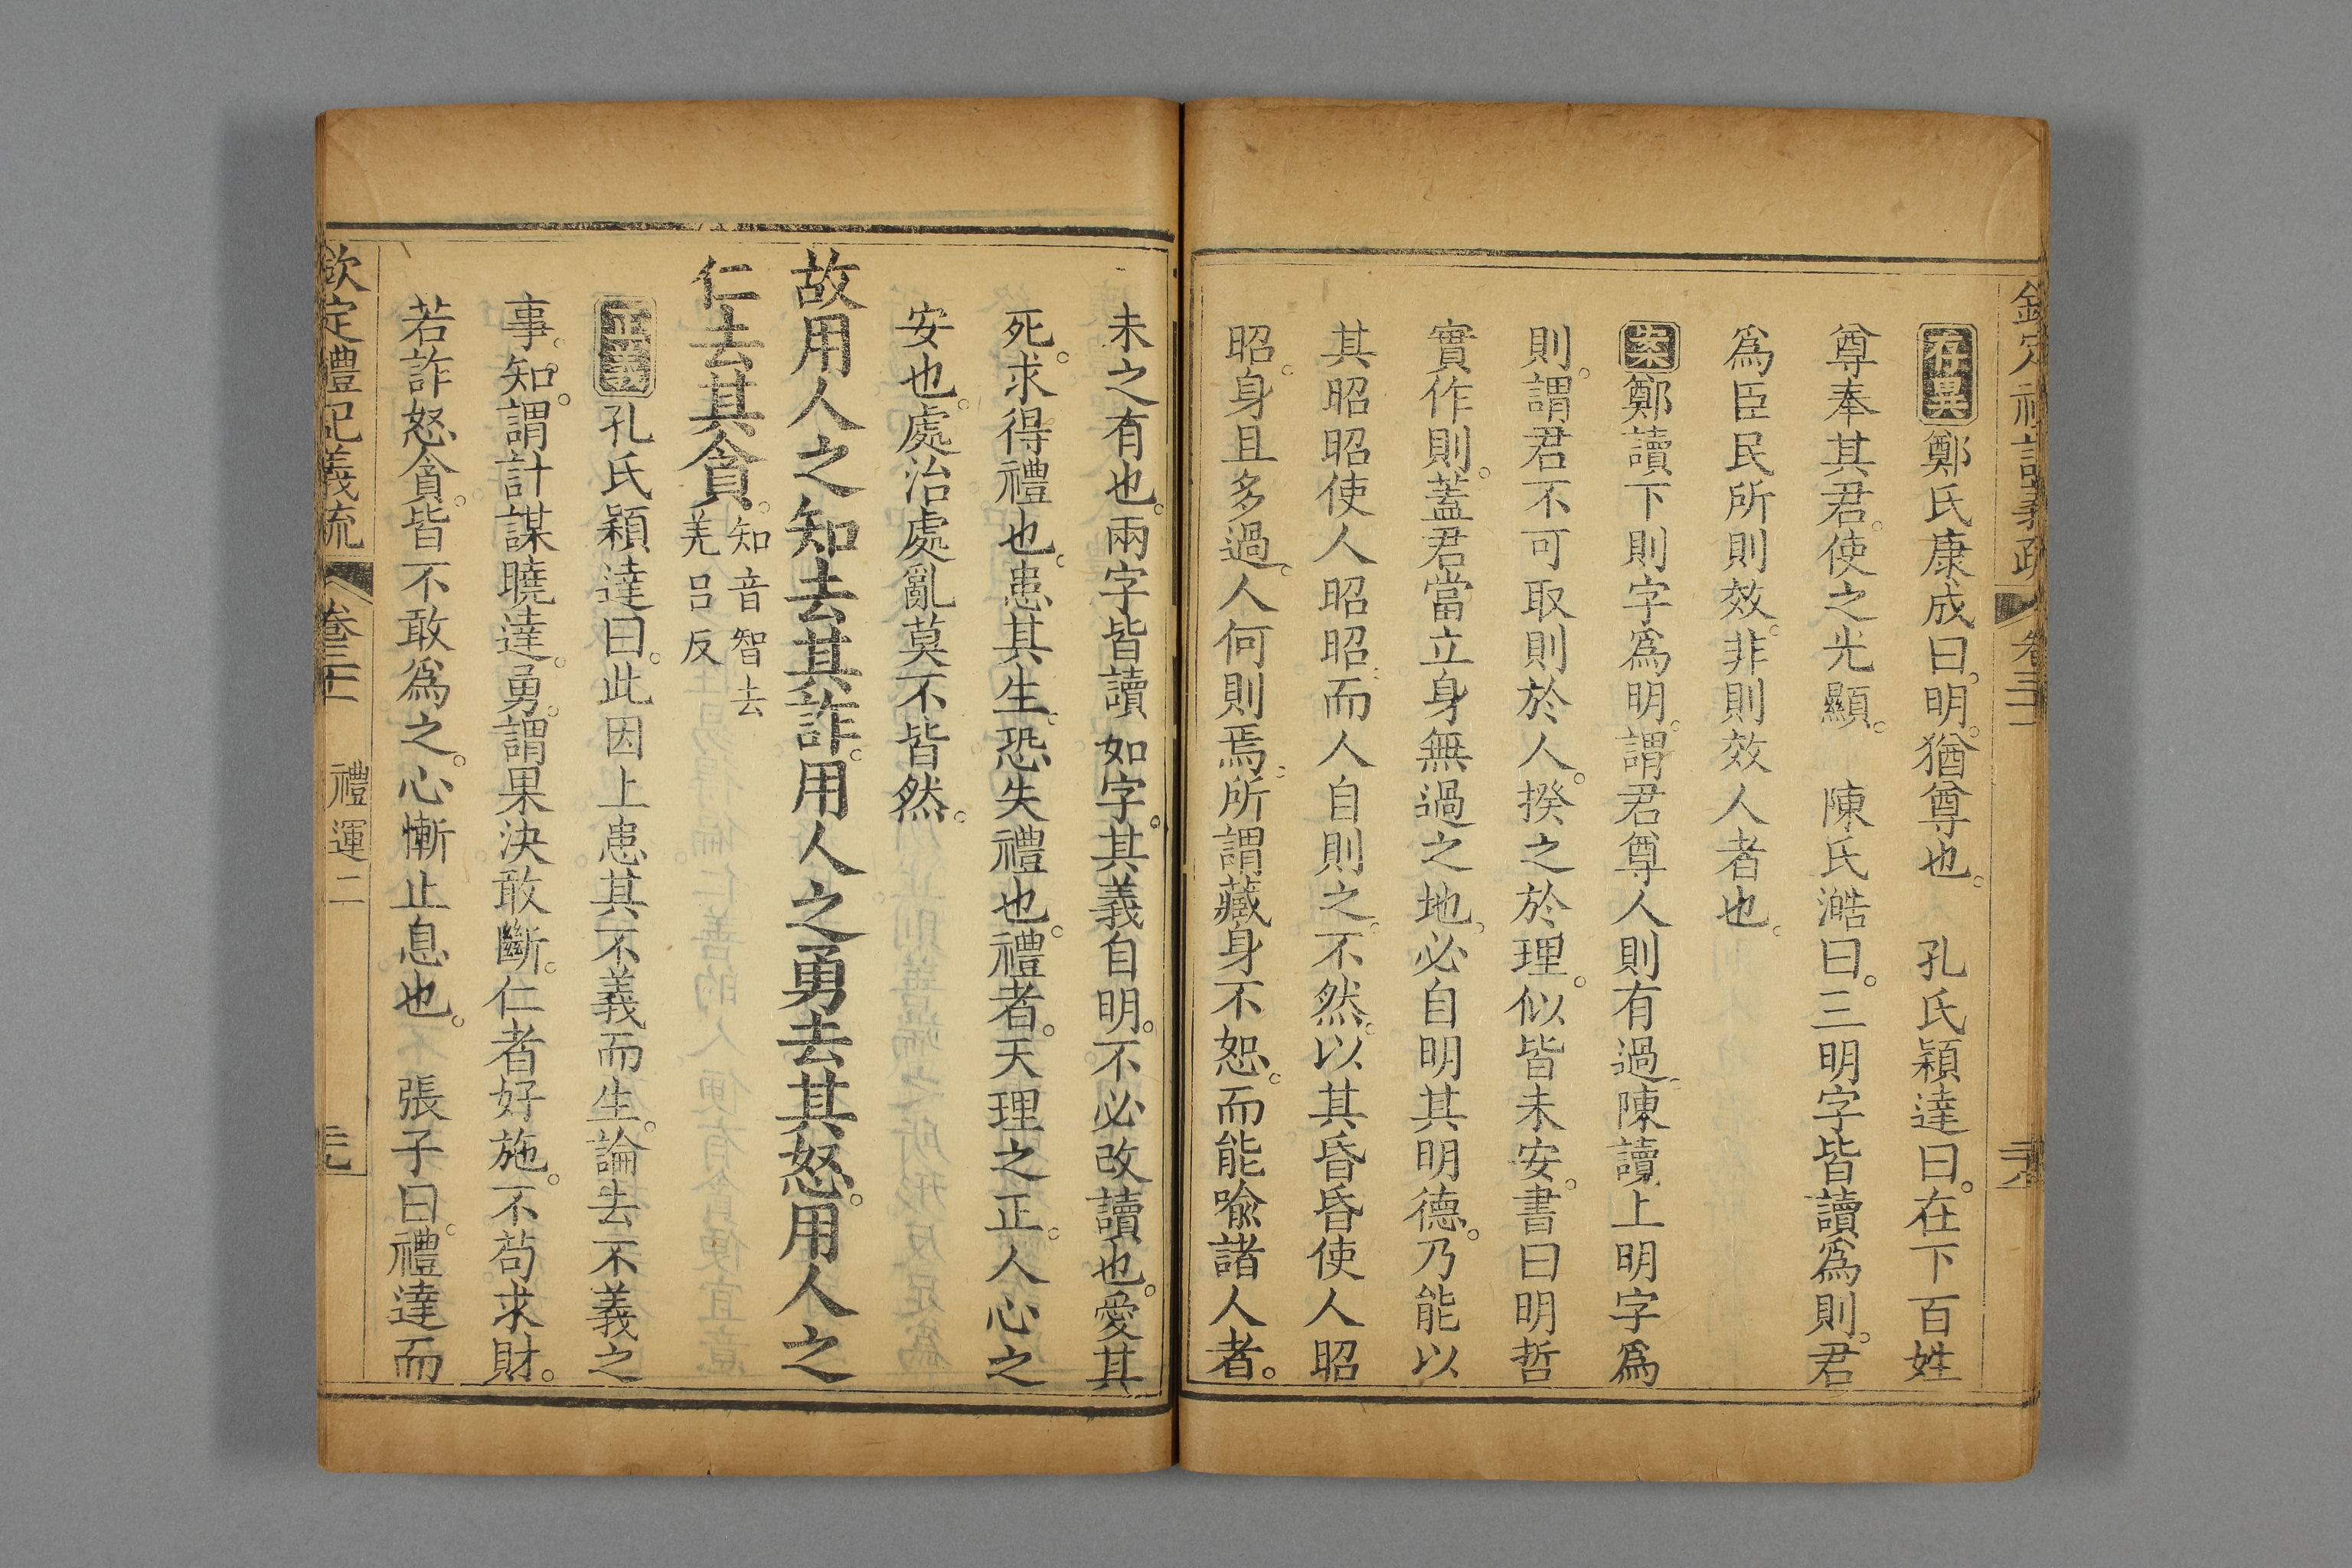 欽定禮記義疏 卷三十一
存異鄭氏康成曰。明。猶尊也。 孔氏穎達曰。在下百姓
尊奉其君。使之光顯。 陳氏澔曰。三明字皆讀爲則。君
爲臣民所則效。非則效人者也。
案鄭讀下則字爲明。謂君尊人則有過。陳讀上明字爲
則。謂君不可取則於人。揆之於理。似皆未安。書曰明哲
實作則。蓋君當立身無過之地。必自明其明德。乃能以
其昭昭使人昭昭。而人自則之。不然。以其昏昏使人昭
昭。身且多過。人何則焉。所謂藏身不恕。而能喻諸人者。
未之有也。兩字皆讀如字。其義自明。不必改讀也。愛其
死。求得禮也。患其生。恐失禮也。禮者。天理之正。人心之
安也。處治處亂莫不皆然。
故用人之知去其詐。用人之勇去其怒。用人之
仁去其貪。知音智去
羌呂反
正義孔氏穎達曰。此因上患其不義而生。論去不義之
事。知。謂計謀曉達。勇。謂果決敢斷。仁者好施。不苟求財。
若詐怒貪。皆不敢爲之。心慚止息也。 張子曰。禮達而
欽定禮記義疏 卷三十一 禮運二